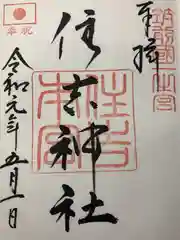 奉拝
筑前國一之宮
住吉神社
住吉本宮
令和元年五月一日
奉祝